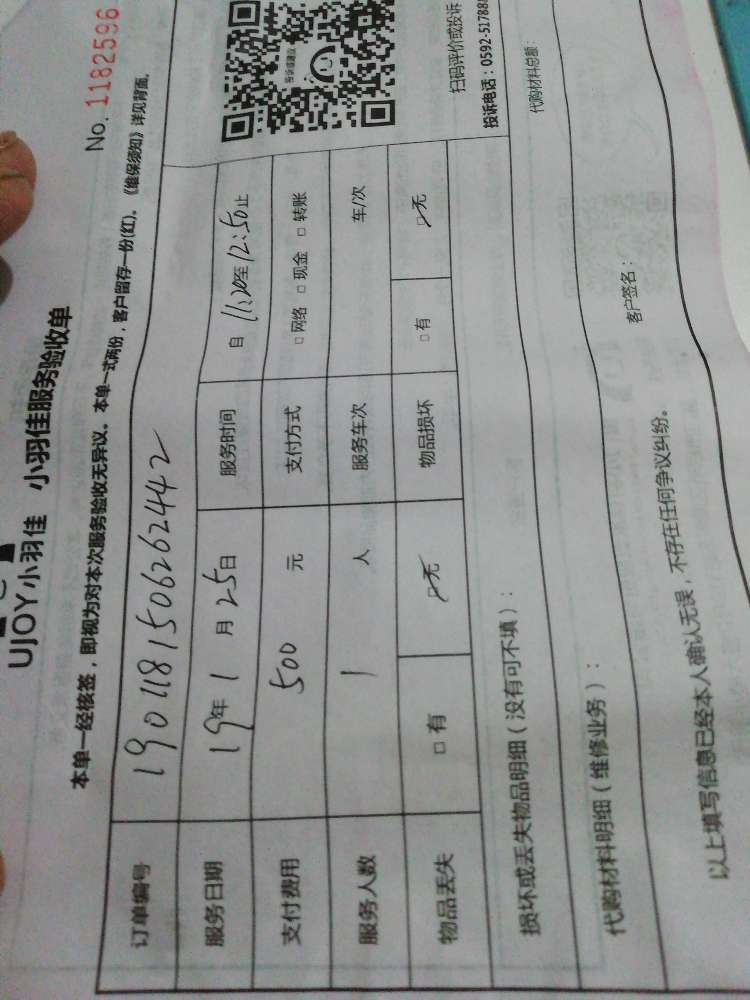 UJOY小羽佳 小羽佳服务验收单
No. 1182596
本单一经核签，即视为对本次服务验收无异议。本单一式两份，客户留存一份(红)。《维保须知》详见背面。
订单编号 1901181506262442
服务日期 19年 1 月 25日 服务时间 自 11:20至 12:50止
支付费用 500 元 支付方式 □ 网络 □ 现金 □ 转账
服务人数 1 人 服务车次 车/次
物品丢失 □ 有 ☑ 无 物品损坏 □ 有 ☑ 无
损坏或丢失物品明细（没有可不填）：
代购材料明细（维修业务）：
代购材料总额：
以上填写信息已经本人确认无误，不存在任何争议纠纷。
客户签名：
扫码评价或投诉
投诉电话：0592-517888